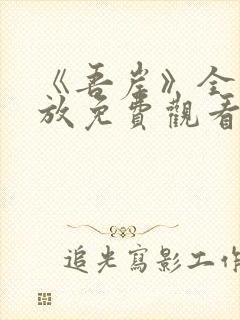 《吾岸》全
放免費觀看
追光寫影工作